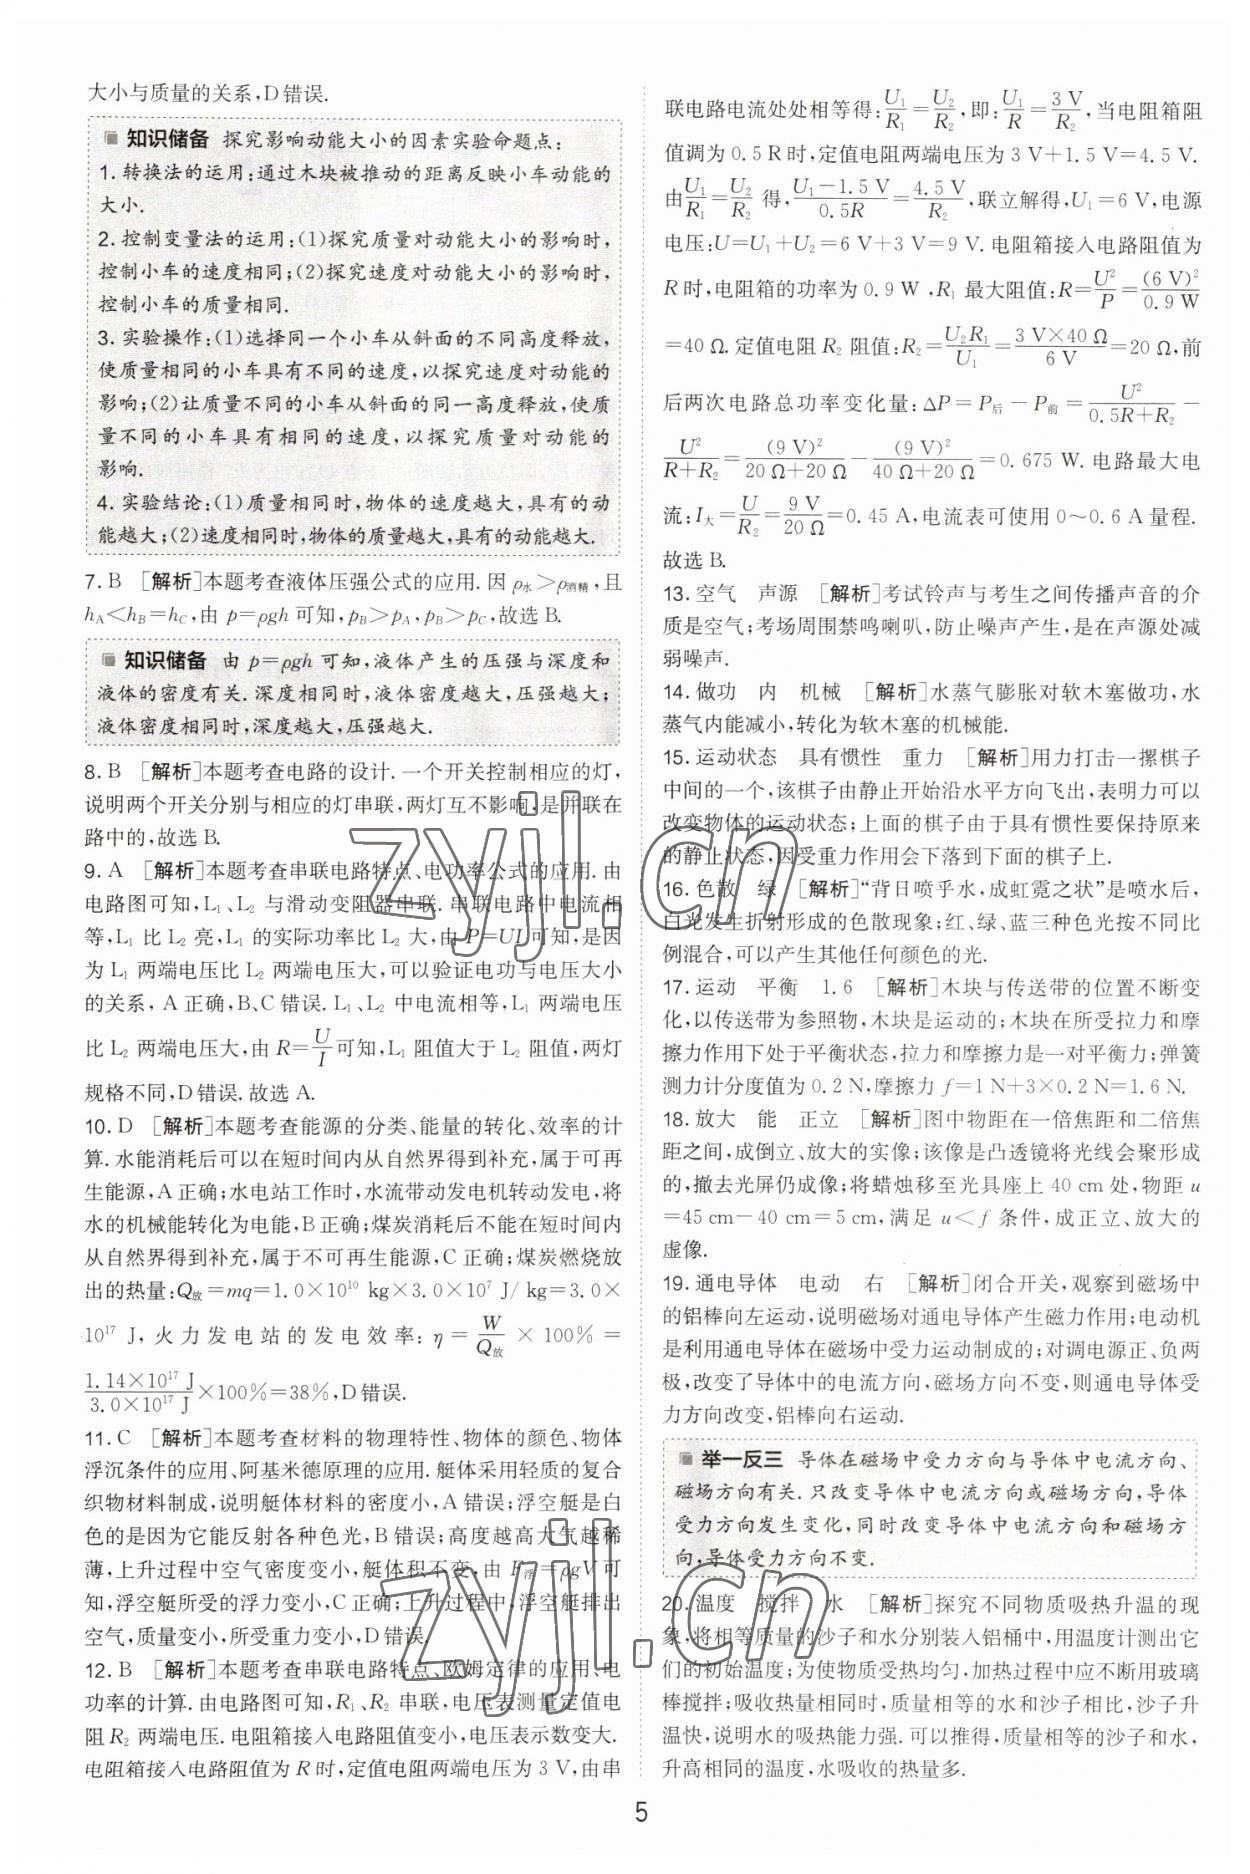 大小与质量的关系,D错误.
知识储备 探究影响动能大小的因素实验命题点:
1. 转换法的运用:通过木块被推动的距离反映小车动能的
大小.
2. 控制变量法的运用:(1)探究质量对动能大小的影响时,
控制小车的速度相同;(2)探究速度对动能大小的影响时,
控制小车的质量相同.
3. 实验操作:(1)选择同一个小车从斜面的不同高度释放,
使质量相同的小车具有不同的速度,以探究速度对动能的
影响;(2)让质量不同的小车从斜面的同一高度释放,使质
量不同的小车具有相同的速度,以探究质量对动能的
影响.
4. 实验结论:(1)质量相同时,物体的速度越大,具有的动
能越大;(2)速度相同时,物体的质量越大,具有的动能越大.
7. B [解析]本题考查液体压强公式的应用. 因 ρ水>ρ酒精,且
hA<hB=hC,由 p=ρgh 可知,pB>pA,pB>pC,故选 B.
知识储备 由 p=ρgh 可知,液体产生的压强与深度和
液体的密度有关. 深度相同时,液体密度越大,压强越大;
液体密度相同时,深度越大,压强越大.
8. B [解析]本题考查电路的设计. 一个开关控制相应的灯,
说明两个开关分别与相应的灯串联,两灯互不影响,是并联在
路中的,故选 B.
9. A [解析]本题考查串联电路特点、电功率公式的应用. 由
电路图可知,L₁、L₂ 与滑动变阻器串联. 串联电路中电流相
等,L₁ 比 L₂ 亮,L₁ 的实际功率比 L₂ 大,由 P=UI 可知,是因
为 L₁ 两端电压比 L₂ 两端电压大,可以验证电功与电压大小
的关系,A 正确,B、C 错误. L₁、L₂ 中电流相等,L₁ 两端电压
比 L₂ 两端电压大,由 R=U/I 可知,L₁ 阻值大于 L₂ 阻值,两灯
规格不同,D 错误. 故选 A.
10. D [解析]本题考查能源的分类、能量的转化、效率的计
算. 水能消耗后可以在短时间内从自然界得到补充,属于可再
生能源,A 正确;水电站工作时,水流带动发电机转动发电,将
水的机械能转化为电能,B 正确;煤炭消耗后不能在短时间内
从自然界得到补充,属于不可再生能源,C 正确;煤炭燃烧放
出的热量:Q放=mq=1.0×10¹⁰ kg×3.0×10⁷ J/ kg=3.0×
10¹⁷ J,火力发电站的发电效率: η = W/Q放 × 100% =
1.14×10¹⁷ J/3.0×10¹⁷ J×100%=38%,D 错误.
11. C [解析]本题考查材料的物理特性、物体的颜色、物体
浮沉条件的应用、阿基米德原理的应用. 艇体采用轻质的复合
织物材料制成,说明艇体材料的密度小,A 错误;浮空艇是白
色的是因为它能反射各种色光,B 错误;高度越高大气越稀
薄,上升过程中空气密度变小,艇体积不变,由 F浮=ρgV 可
知,浮空艇所受的浮力变小,C 正确;上升过程中,浮空艇排出
空气,质量变小,所受重力变小,D 错误.
12. B [解析]本题考查串联电路特点、欧姆定律的应用、电
功率的计算. 由电路图可知,R₁、R₂ 串联,电压表测量定值电
阻 R₂ 两端电压. 电阻箱接入电路阻值变小,电压表示数变大.
电阻箱接入电路阻值为 R 时,定值电阻两端电压为 3 V,由串
联电路电流处处相等得:U₁/R₁=U₂/R₂,即:U₁/R=3 V/R₂,当电阻箱阻
值调为 0.5 R 时,定值电阻两端电压为 3 V+1.5 V=4.5 V.
由U₁/R₁=U₂/R₂ 得,(U₁-1.5 V)/0.5R=4.5 V/R₂,联立解得,U₁=6 V,电源
电压:U=U₁+U₂=6 V+3 V=9 V. 电阻箱接入电路阻值为
R 时,电阻箱的功率为 0.9 W ,R₁ 最大阻值:R=U²/P=(6 V)²/0.9 W
=40 Ω. 定值电阻 R₂ 阻值:R₂=U₂R₁/U₁=3 V×40 Ω/6 V=20 Ω,前
后两次电路总功率变化量:ΔP=P后-P前=U²/(0.5R+R₂)-
U²/(R+R₂)=(9 V)²/(20 Ω+20 Ω)-(9 V)²/(40 Ω+20 Ω)=0.675 W. 电路最大电
流:I大=U/R₂=9 V/20 Ω=0.45 A,电流表可使用 0~0.6 A 量程.
故选 B.
13. 空气 声源 [解析]考试铃声与考生之间传播声音的介
质是空气;考场周围禁鸣喇叭,防止噪声产生,是在声源处减
弱噪声.
14. 做功 内 机械 [解析]水蒸气膨胀对软木塞做功,水
蒸气内能减小,转化为软木塞的机械能.
15. 运动状态 具有惯性 重力 [解析]用力打击一摞棋子
中间的一个,该棋子由静止开始沿水平方向飞出,表明力可以
改变物体的运动状态;上面的棋子由于具有惯性要保持原来
的静止状态,因受重力作用会下落到下面的棋子上.
16. 色散 绿 [解析]“背日喷乎水,成虹霓之状”是喷水后,
白光发生折射形成的色散现象;红、绿、蓝三种色光按不同比
例混合,可以产生其他任何颜色的光.
17. 运动 平衡 1.6 [解析]木块与传送带的位置不断变
化,以传送带为参照物,木块是运动的;木块在所受拉力和摩
擦力作用下处于平衡状态,拉力和摩擦力是一对平衡力;弹簧
测力计分度值为 0.2 N,摩擦力 f=1 N+3×0.2 N=1.6 N.
18. 放大 能 正立 [解析]图中物距在一倍焦距和二倍焦
距之间,成倒立、放大的实像;该像是凸透镜将光线会聚形成
的,撤去光屏仍成像;将蜡烛移至光具座上 40 cm 处,物距 u
=45 cm-40 cm=5 cm,满足 u<f 条件,成正立、放大的
虚像.
19. 通电导体 电动 右 [解析]闭合开关,观察到磁场中
的铝棒向左运动,说明磁场对通电导体产生磁力作用;电动机
是利用通电导体在磁场中受力运动制成的;对调电源正、负两
极,改变了导体中的电流方向,磁场方向不变,则通电导体受
力方向改变,铝棒向右运动.
举一反三 导体在磁场中受力方向与导体中电流方向、
磁场方向有关. 只改变导体中电流方向或磁场方向,导体
受力方向发生变化,同时改变导体中电流方向和磁场方
向,导体受力方向不变.
20. 温度 搅拌 水 [解析]探究不同物质吸热升温的现
象,将相等质量的沙子和水分别装入铝桶中,用温度计测出它
们的初始温度;为使物质受热均匀,加热过程中应不断用玻璃
棒搅拌;吸收热量相同时,质量相等的水和沙子相比,沙子升
温快,说明水的吸热能力强. 可以推得,质量相等的沙子和水,
升高相同的温度,水吸收的热量多.
5
zyjl.cn
zyjl.cn